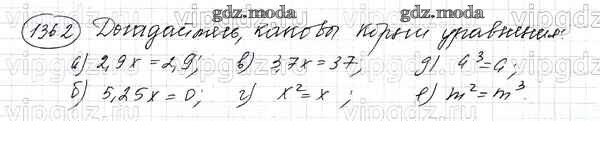 gdz.moda gdz.moda
1362 Догадайтесь, каковы корни уравнения:
а) 2,9x = 2,9; в) 37x = 37; д) a³ = a;
б) 5,25x = 0; г) x² = x; е) m² = m³.